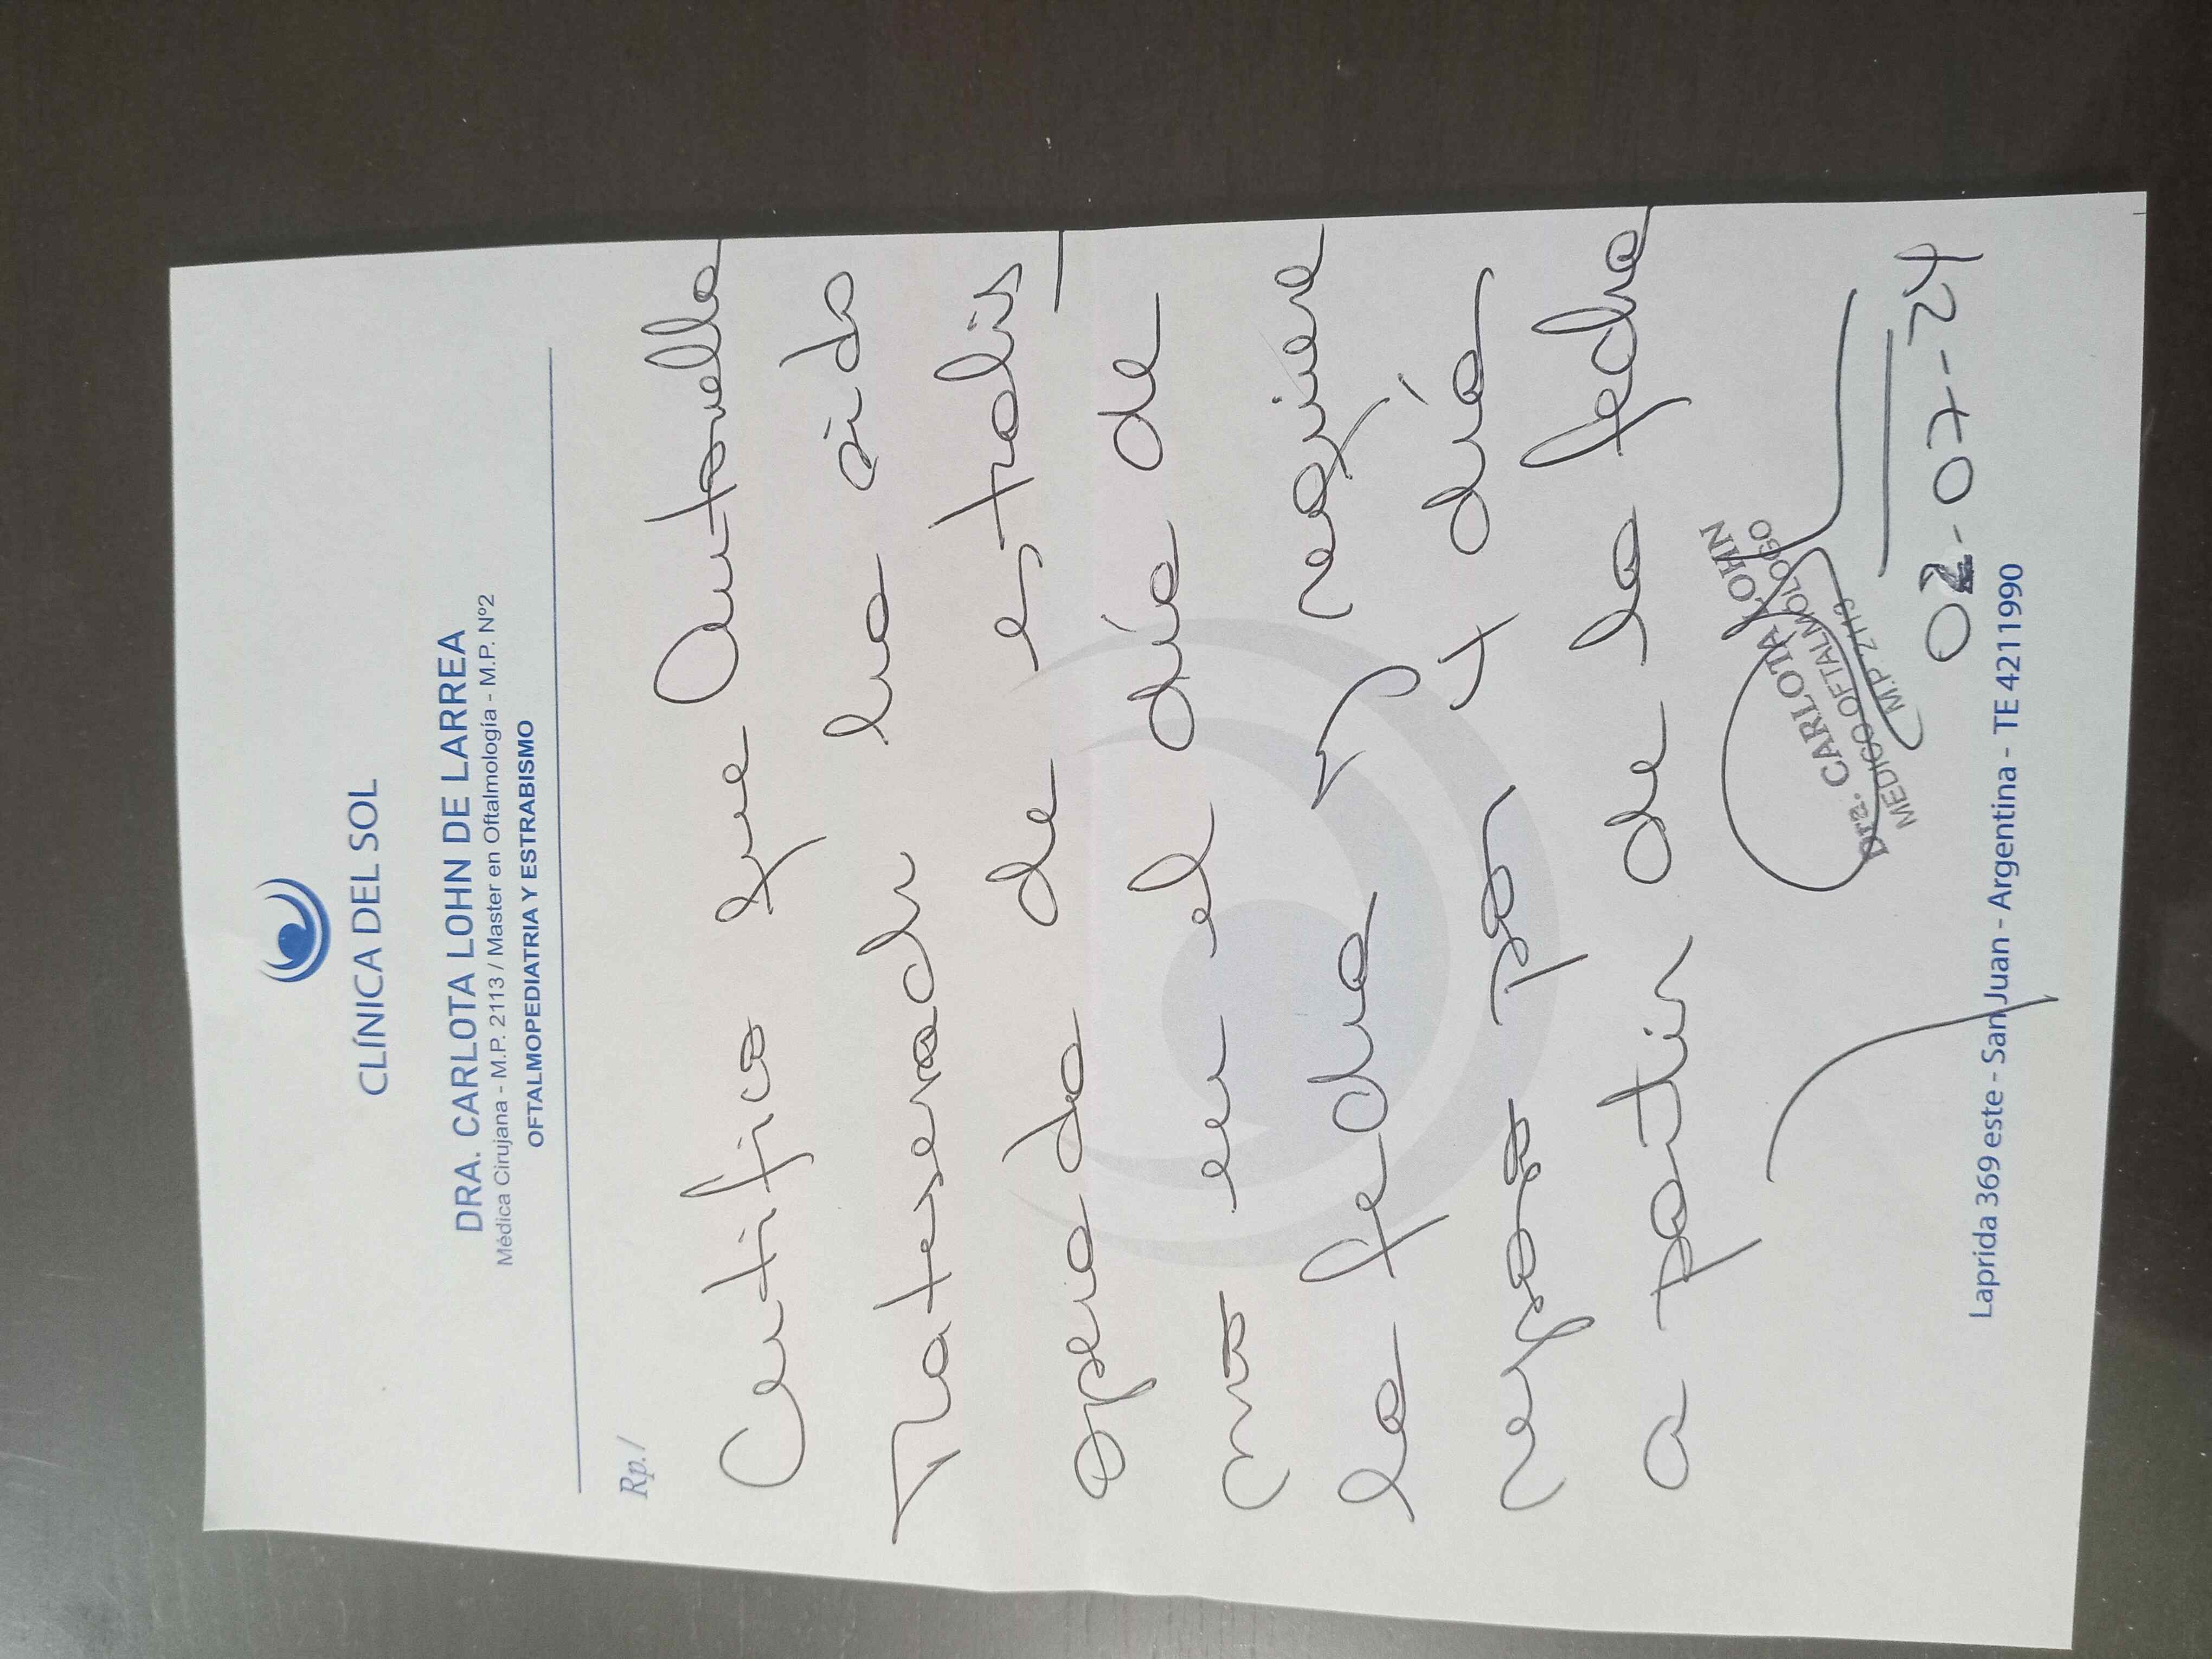 CLÍNICA DEL SOL
DRA. CARLOTA LOHN DE LARREA
Médica Cirujana - M.P. 2113 / Master en Oftalmología - M.P. Nº2
OFTALMOPEDIATRIA Y ESTRABISMO
Rp./
Certifico que Antonella
ha sido
operada de estrabis
mo en el día de
la fecha y requiere
reposo por día
a partir de la fecha
Dra. CARLOTA LOHN
MEDICO OFTALMOLOGO
M.P. 2113
02-07-24
Laprida 369 este - San Juan - Argentina - TE 4211990